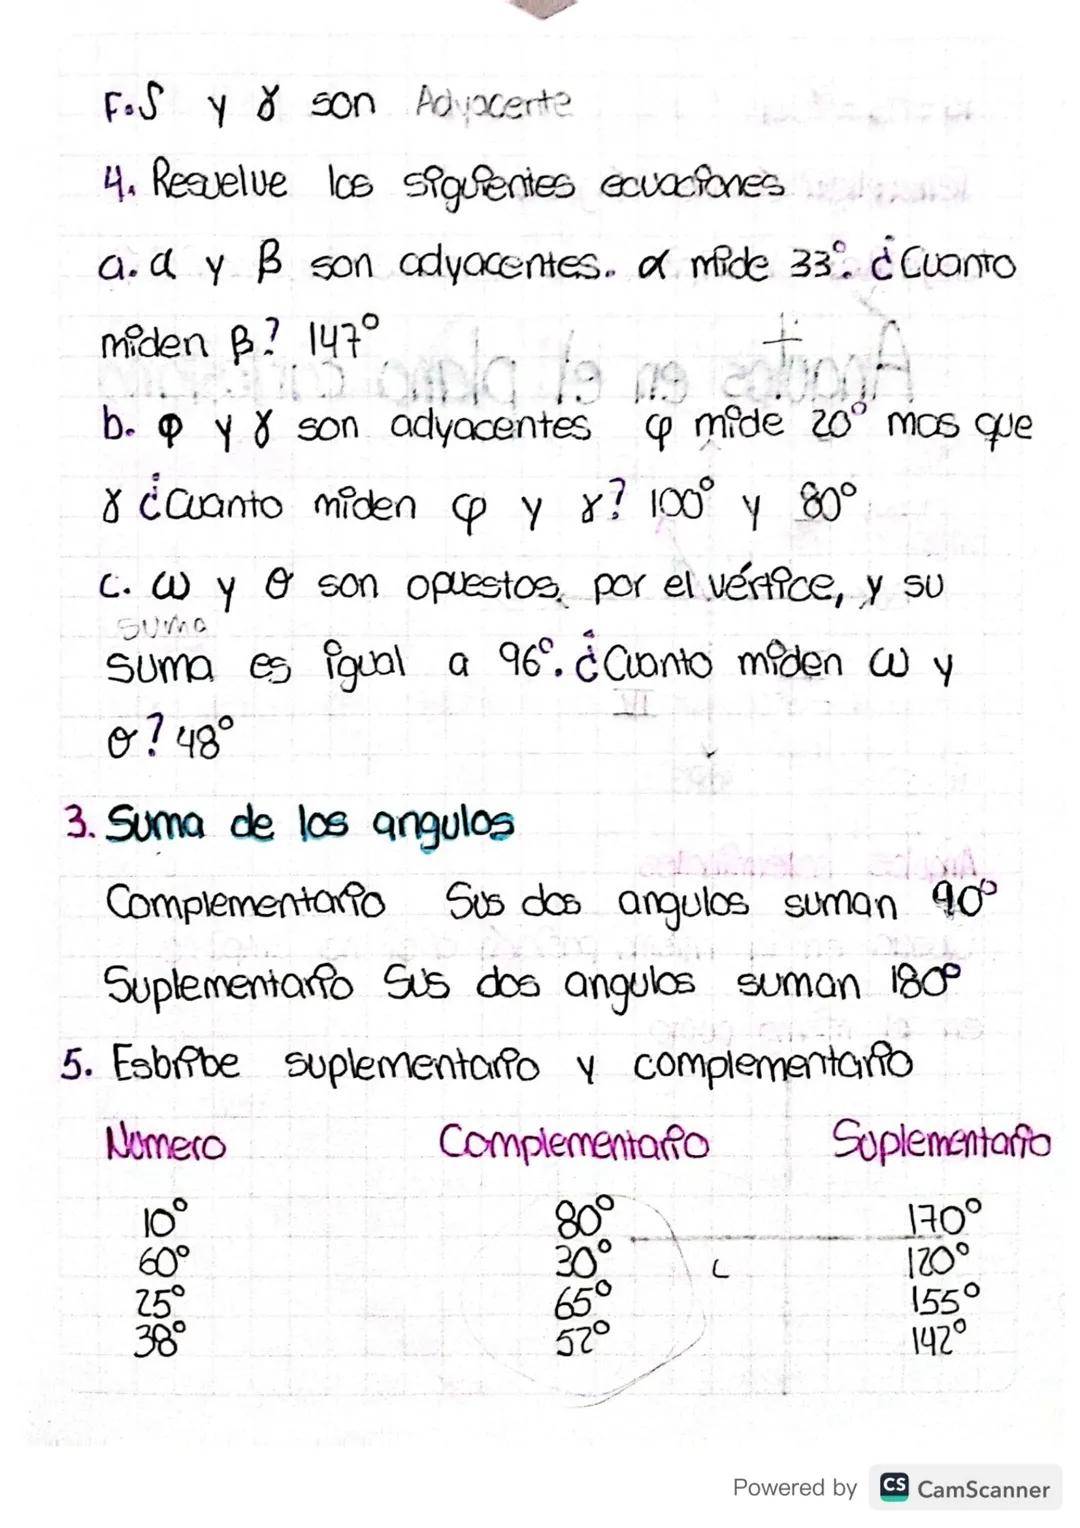 F. δ y γ son Adyacente
4. Resuelve las siguientes ecuaciones
a. α y β son adyacentes. α mide 33°. ¿Cuanto
miden β? 147°
b. φ y γ son adyacentes φ mide 20° mas que
γ ¿Cuanto miden φ y γ? 100° y 80°
c. ω y θ son opuestos, por el vértice, y su
suma
suma es igual a 96°. ¿Cuanto miden ω y
θ? 48°
3. Suma de los angulos
Complementario Sus dos angulos suman 90°
Suplementario Sus dos angulos suman 180°
5. Esbribe suplementario y complementario
Numero Complementario Suplementario
10° 80° 170°
60° 30° 120°
25° 65° 155°
38° 52° 142°
Powered by CS CamScanner